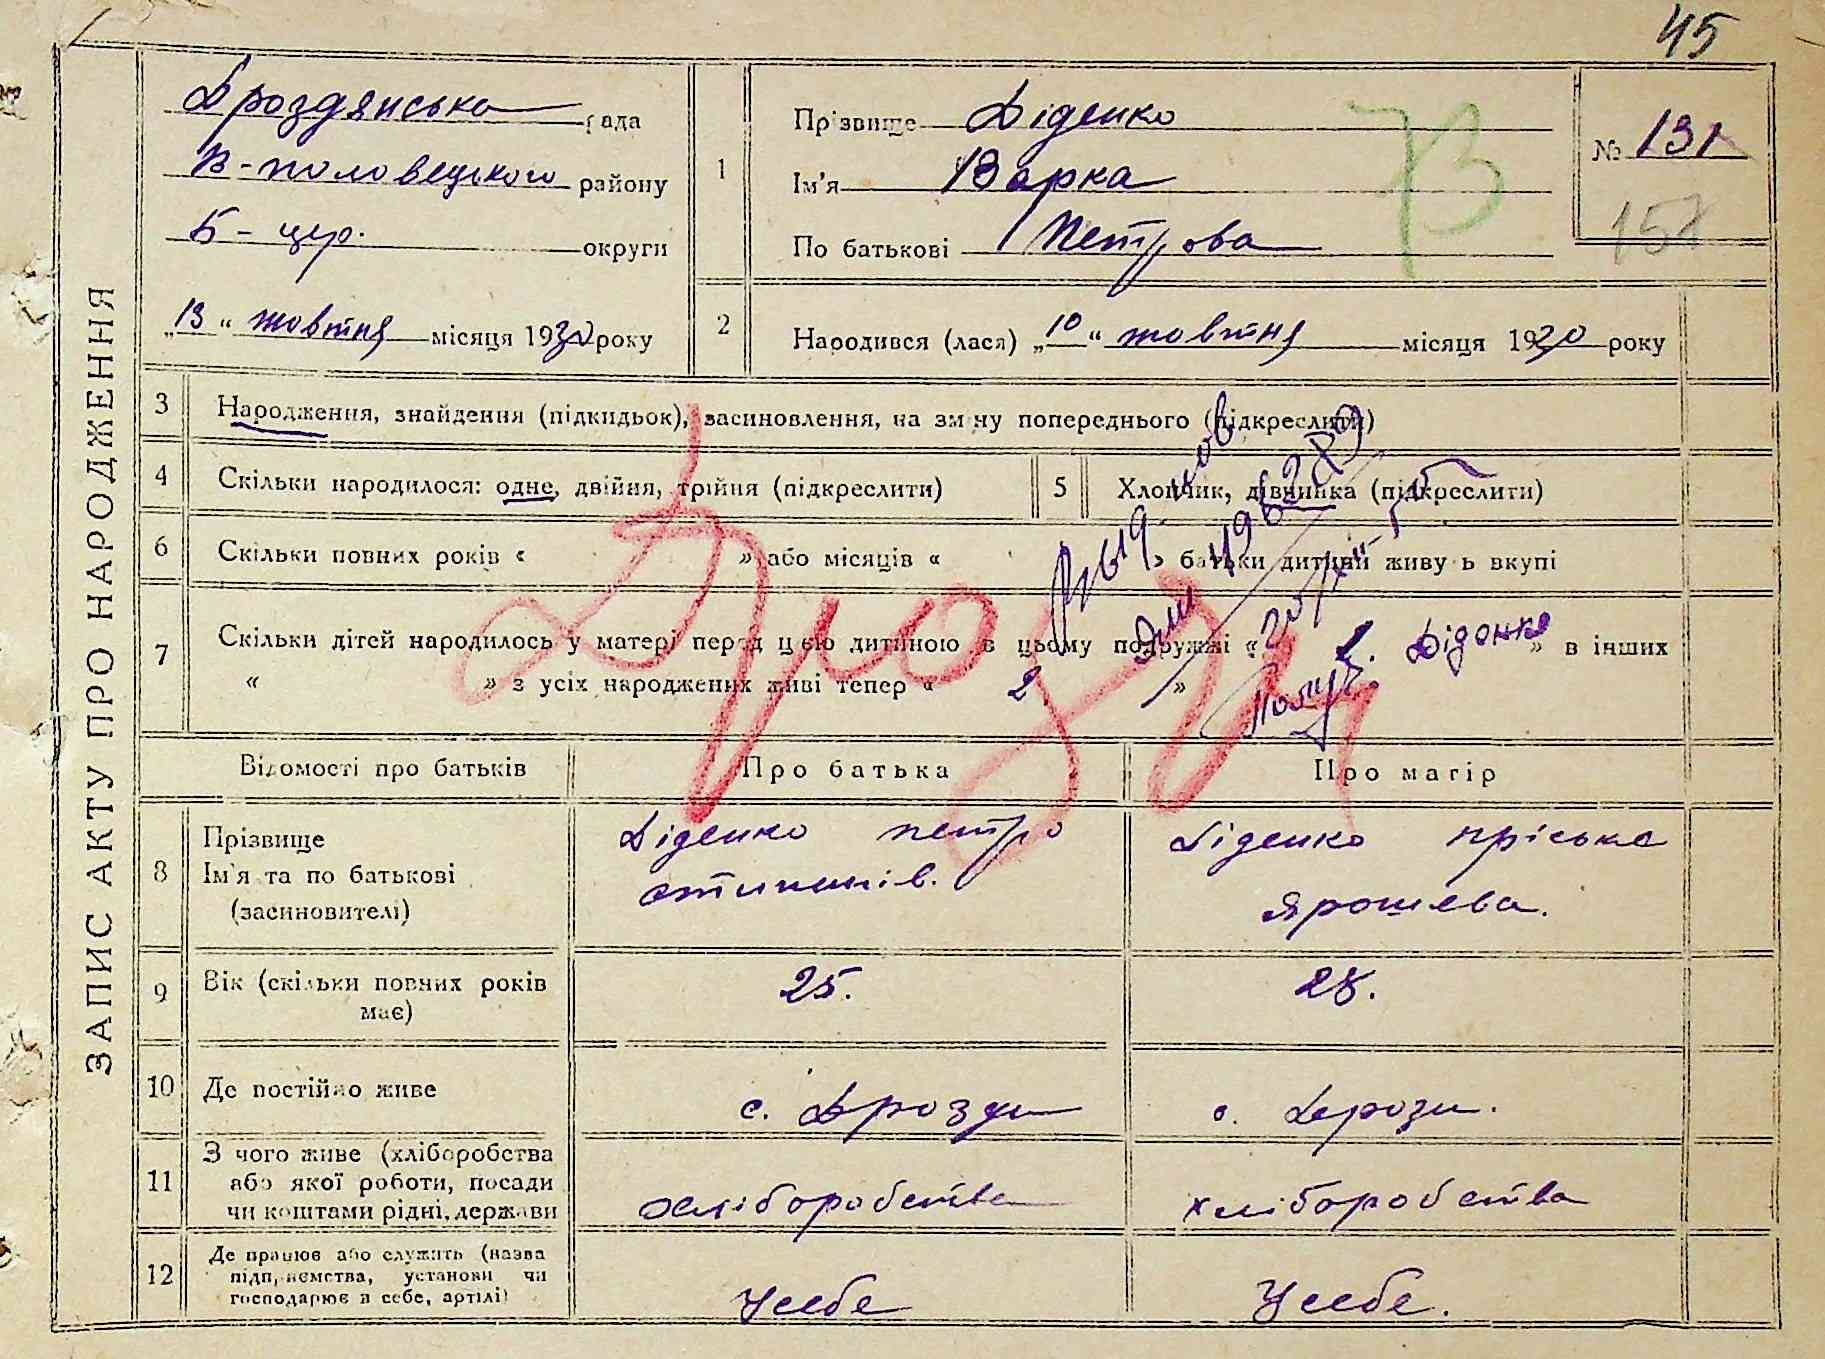 45
ЗАПИС АКТУ ПРО НАРОДЖЕННЯ
Дроздянська рада
В-половецького району
Б-цер. округи
„13“ жовтня місяця 1930 року
1
Прізвище Діденко
Ім'я Варка
По батькові Петрова
№ 131
157
В
2
Народився (лася) „10“ жовтня місяця 1930 року
3 Народження, знайдення (підкидьок), засиновлення, на зміну попереднього (підкреслити)
4 Скільки народилося: одне, двійня, трійня (підкреслити)
5 Хлопчик, дівчинка (підкреслити)
6 Скільки повних років « » або місяців « » батьки дитини живуть вкупі
7 Скільки дітей народилось у матері перед цією дитиною в цьому подружжі « 2. » в інших
« » з усіх народжених живі тепер « 2 »
Діденко
Дрозди
Відомості про батьків
Про батька
Про матір
8 Прізвище
Ім'я та по батькові
(засиновителі)
Діденко петро
Діденко пріська
Ярошева.
9 Вік (скільки повних років має)
25.
28.
10 Де постійно живе
с. Дрозди
с. Дрози.
11 З чого живе (хліборобства
або якої роботи, посади
чи коштами рідні, держави
хліборобства
хліборобства
12 Де працює або служить (назва
підприємства, установи чи
господарює в себе, артілі)
Усебе
Усебе.